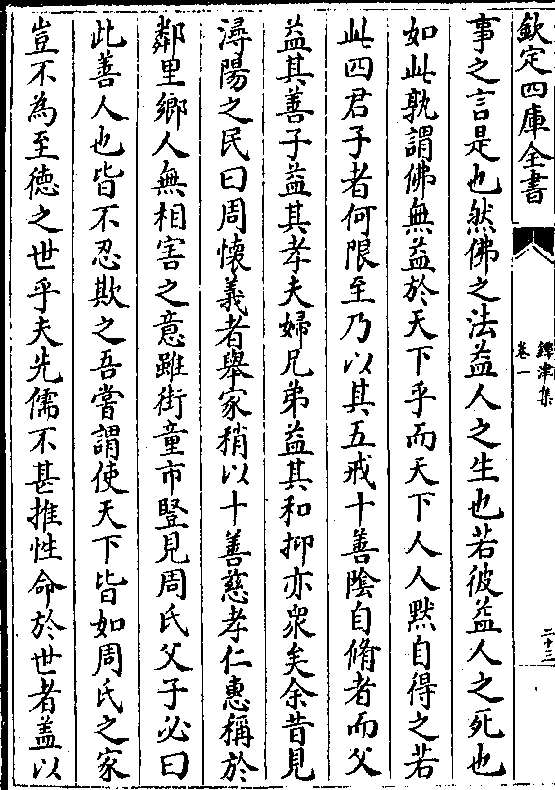 欽定四庫全書
鐔津集
卷一
二十三
事之言是也然佛之法益人之生也若彼益人之死也
如此孰謂佛無益於天下乎而天下人人黙自得之若
此四君子者何限至乃以其五戒十善隂自脩者而父
益其善子益其孝夫婦兄弟益其和抑亦衆矣余昔見
潯陽之民曰周懷義者舉家稍以十善慈孝仁惠稱於
鄰里鄉人無相害之意雖街童市豎見周氏父子必曰
此善人也皆不忍欺之吾嘗謂使天下皆如周氏之家
豈不為至德之世乎夫先儒不甚推性命於世者盖以